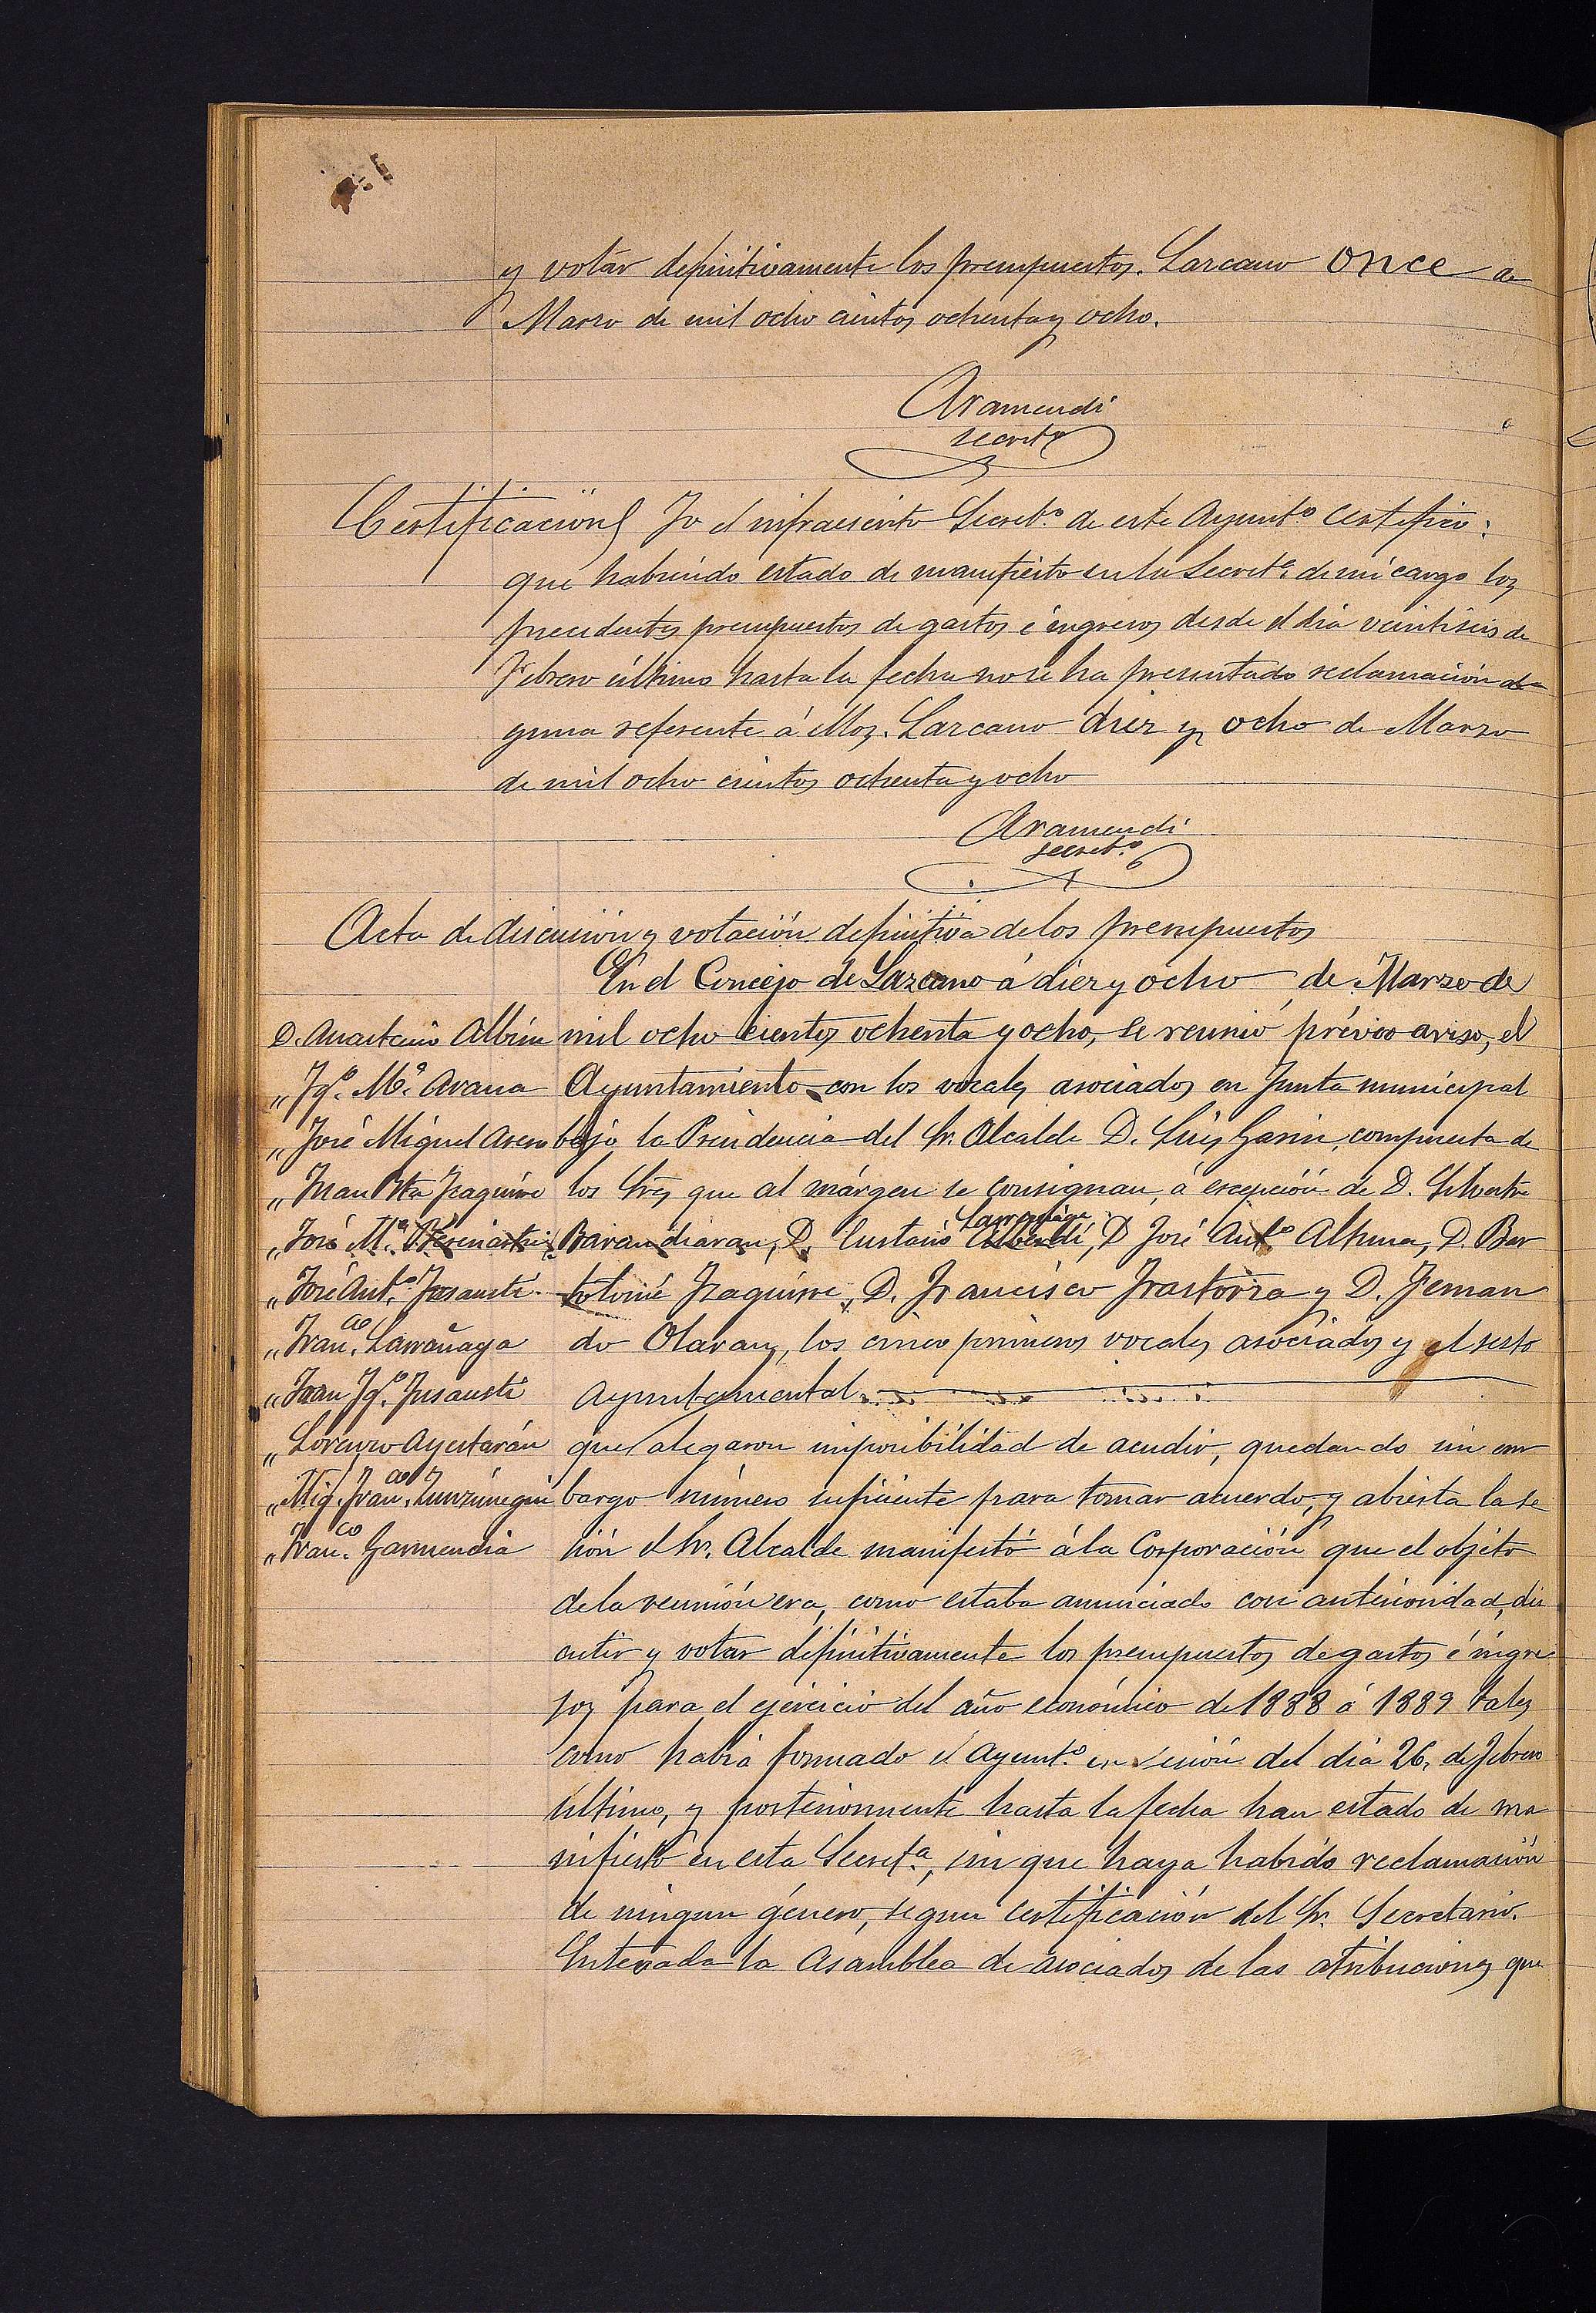 y votar definitivamente los presupuestos. Lazcano once de
Marzo de mil ocho cientos ochenta y ocho.
Aramendi
secret.º
Certificación Yo el infraescrito Secret.º de este Ayunt.º certifico:
que habiendo estado de manifiesto en la Secret.ª de mi cargo los
precedentes presupuestos de gastos é ingresos desde el dia veintiseis de
Febrero último hasta la fecha no se ha presentado reclamación al
guna referente á ellos. Lazcano diez y ocho de Marzo
de mil ocho cientos ochenta y ocho
Aramendi
secret.º
Acta de discusión y votación definitiva de los presupuestos
En el Concejo de Lazcano á diez y ocho de Marzo de
D. Anastasio Albisu mil ocho cientos ochenta y ocho, se reunió prévio aviso, el
" Ygº. Mª. Arana Ayuntamiento con los vocales asociados en Junta municipal
" José Miguel Areso bajo la Presidencia del Sr. Alcalde D. Luis Garin, compuesta de
" Juan Bta Yzaguirre los Sres que al márgen se consignan, á escepción de D. Silvestre
Larrañaga
" José Mª. Barandiaran, D. Eustasio Alberdi, D José Antº Altuna, D. Bar
" José Antº. Jusausti tolomé Yzaguirre, D. Francisco Yrastorza y D. Fernan
" Franco. Larrañaga do Olaran, los cinco primeros vocales asociados y el sesto
" Juan Ygº. Jusausti Ayuntamental.
" Lorenzo Ayestarán que alegaron imposibilidad de acudir, quedando sin em
" Mig. Franco. Zunzunegui bargo número suficiente para tomar acuerdo, y abierta la se
" Franco. Garmendia sión el Sr. Alcalde manifestó á la Corporación que el objeto
de la reunión era, como estaba anunciado con anterioridad, dis
cutir y votar definitivamente los presupuestos de gastos é ingre
sos para el ejercicio del año económico de 1888 á 1889 tales
como habia formado el Ayunt.º en sesión del dia 26, de Febrero
último, y posteriormente hasta la fecha han estado de ma
nifiesto en esta Secret.ª, sin que haya habido reclamación
de ningun género, segun certificación del Sr. Secretario.
Enterada la Asamblea de asociados de las atribuciones que